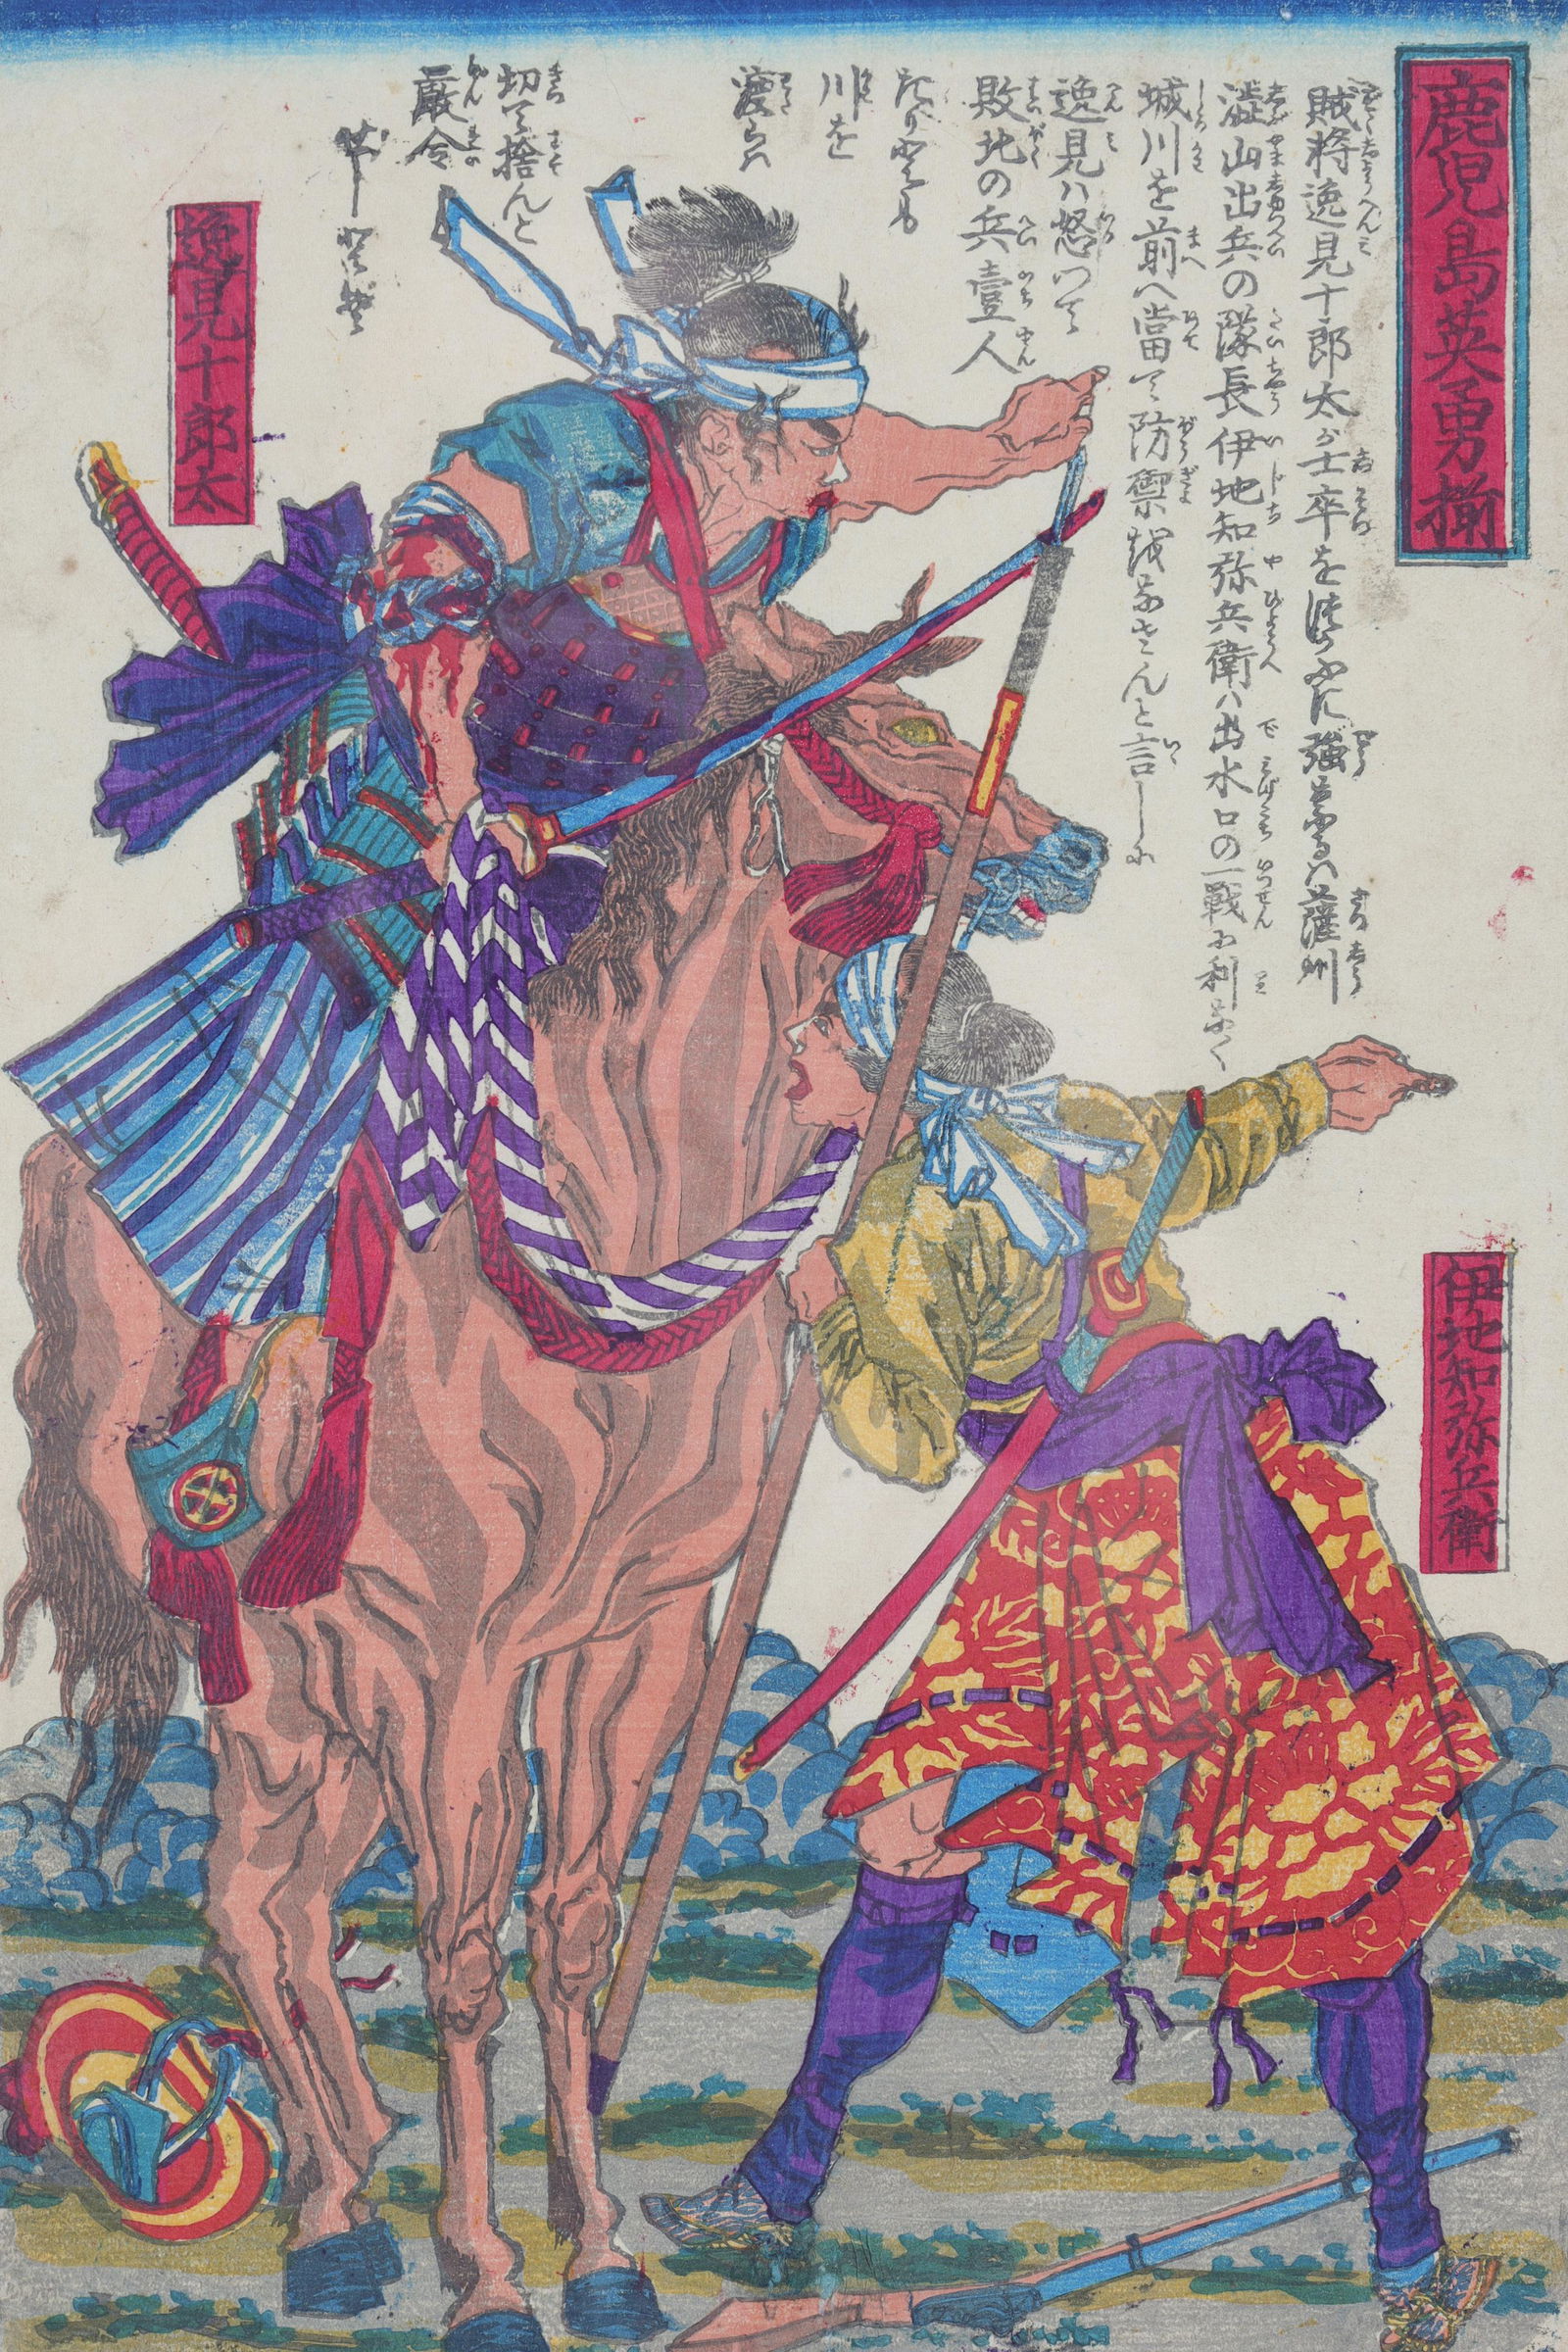 鹿児島英勇揃
賊将逸見十郎太が士卒を
強
薩州
澁山出兵の隊長伊地知弥兵衛ハ出水口の一戦に利なく
城川を前へ當て防禦
なさんと言しに
逸見ハ怒つて
敗地の兵壹人
たりとも
川を
渡らバ
切て捨んと
嚴令
伊地知弥兵衛
逸見十郎太